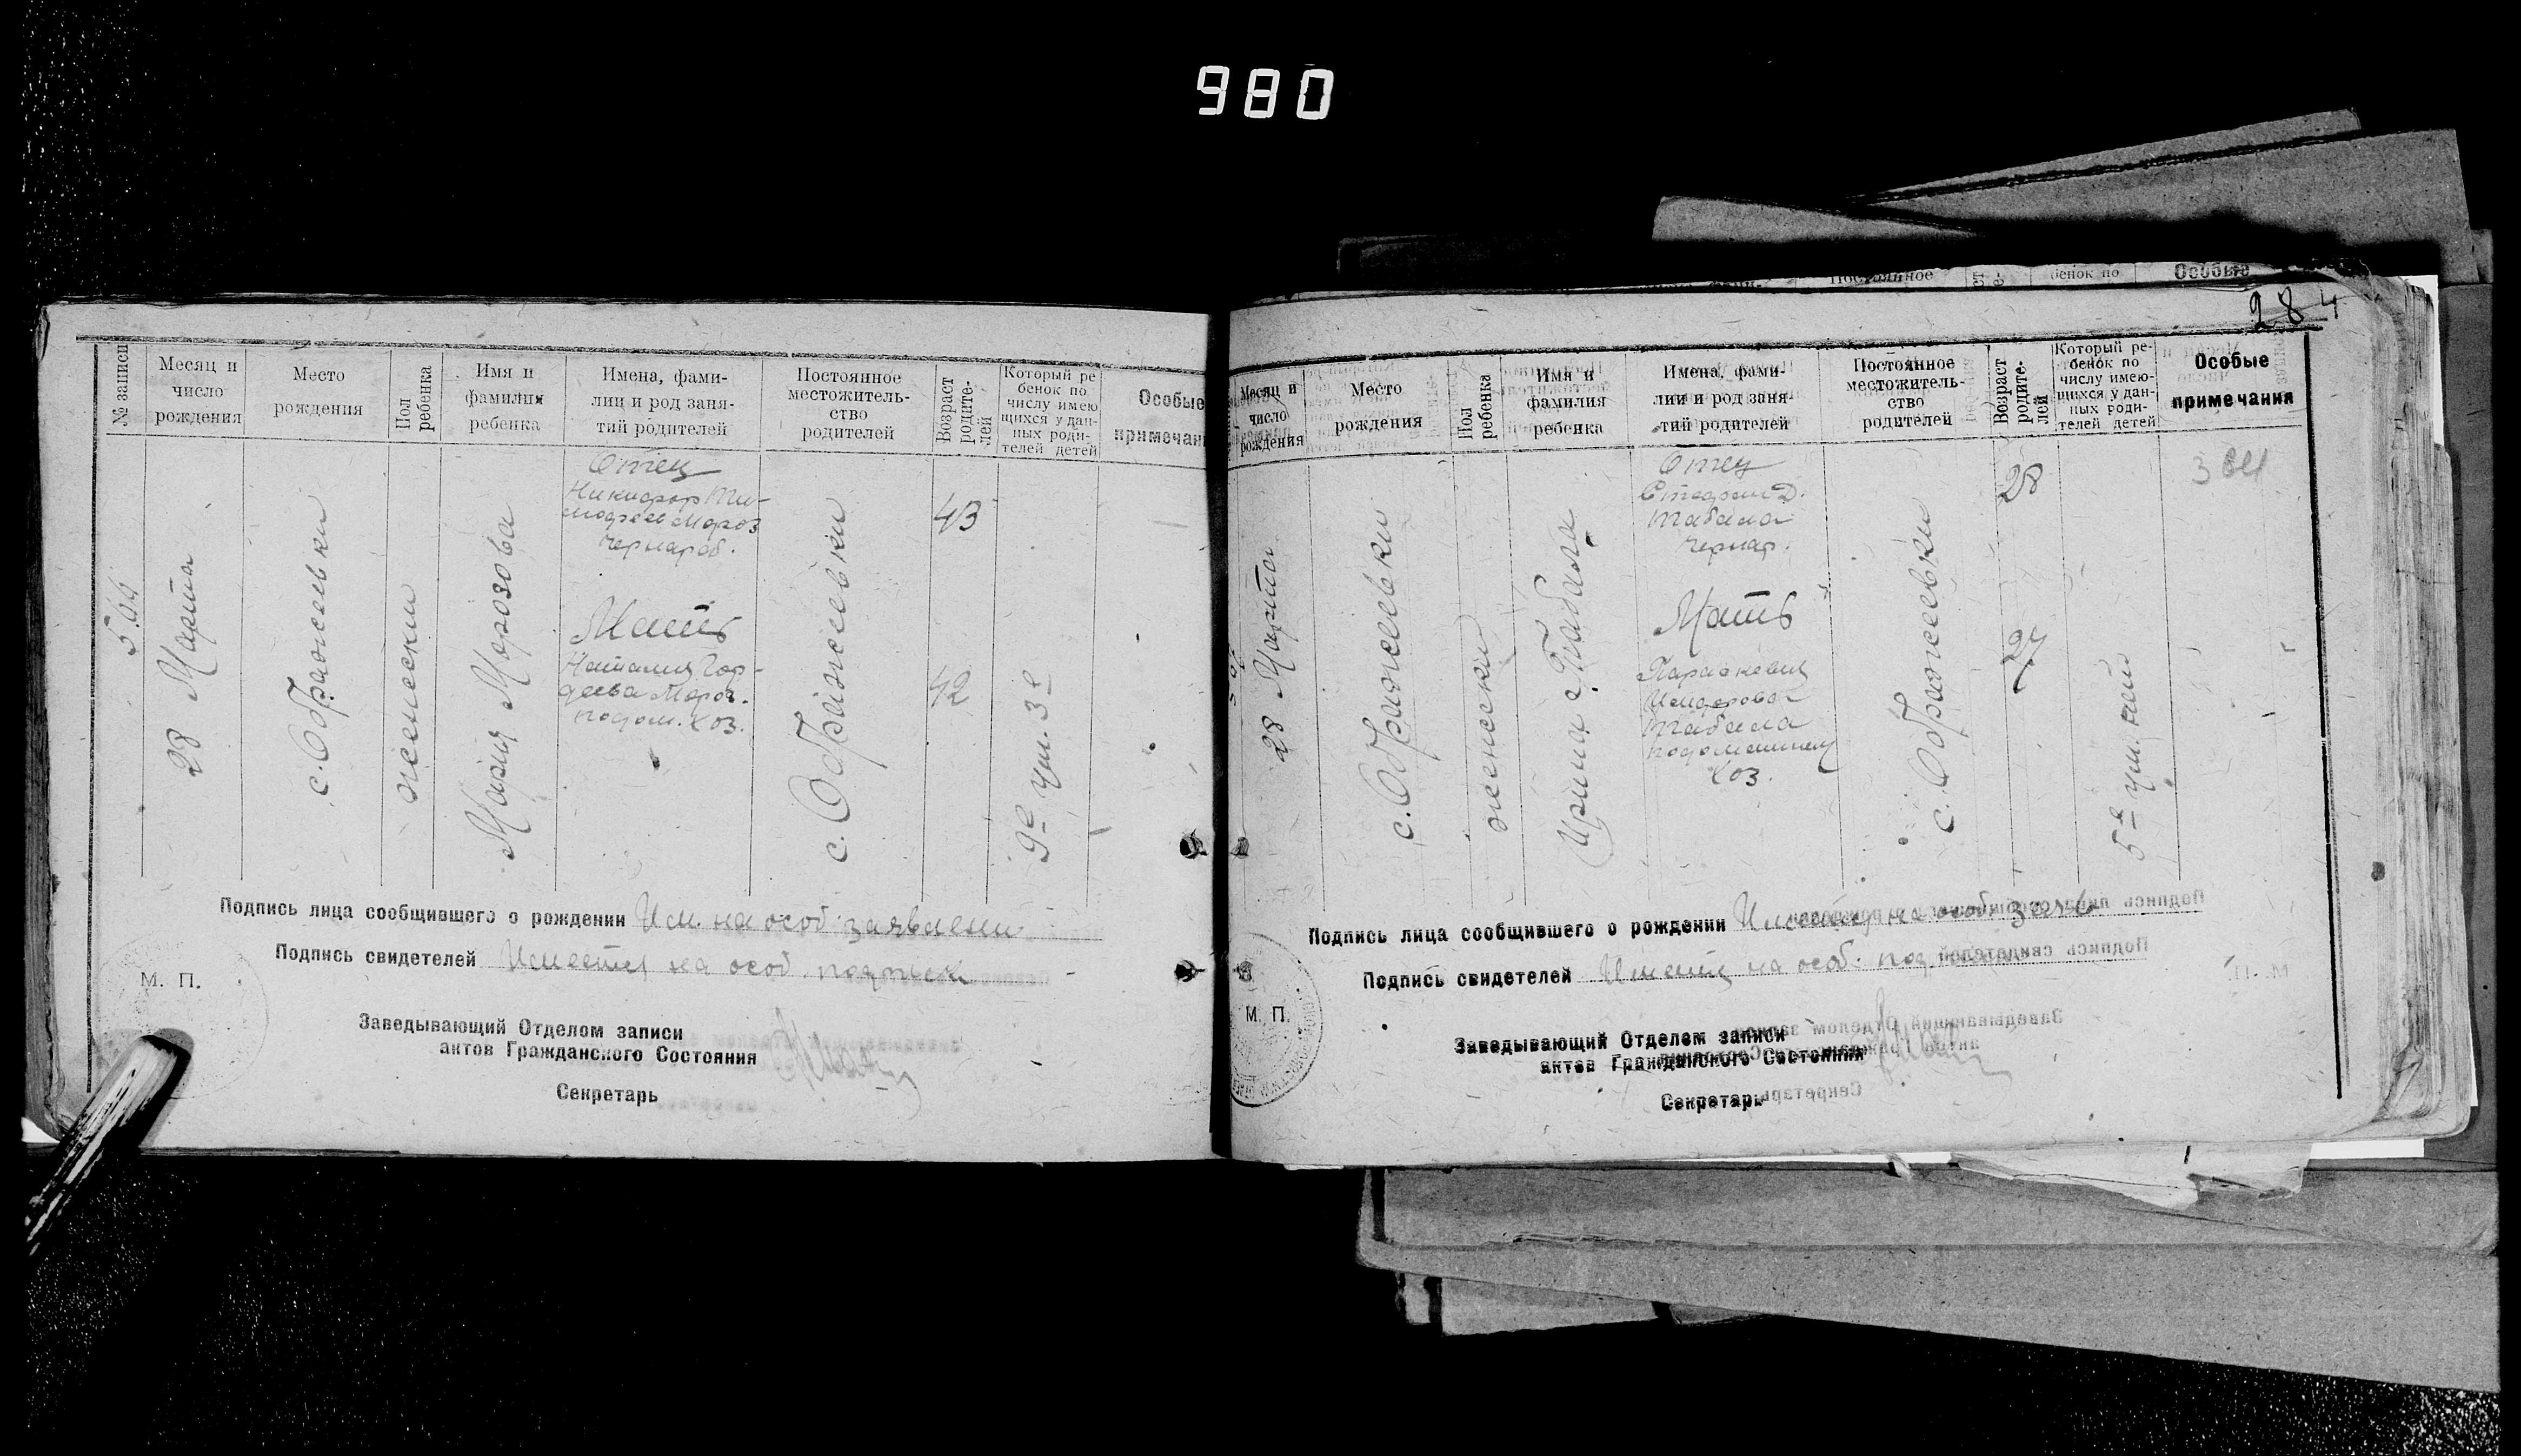 980
№ записи
Месяц и
число
рождения
Место
рождения
Пол
ребенка
Имя и
фамилия
ребенка
Имена, фами-
лии и род заня-
тий родителей
Постоянное
местожитель-
ство
родителей
Возраст
родите-
лей
Который ре
бенок по
числу имею
щихся у дан-
ных роди-
телей детей
Особые
примечан
28 Марта
женски
Мария Морозова
Отец
Никифор Ти-
мофеев Мороз
чернораб.
Мать
Наталия Гор-
деева Мороз.
подом. хоз.
43
42
9е ум. 3е
Подпись лица сообщившего о рождении Им. на особ. заявлени
Подпись свидетелей Имеетц на особ. подписи
М. П.
Заведывающий Отделом записи
актов Гражданского Состояния
Секретарь
284
Постоянное
бенок по
Особые
Месяц и
число
рождения
Место
рождения
Пол
ребенка
Имя и
фамилия
ребенка
Имена, фами-
лии и род заня-
тий родителей
Постоянное
местожитель-
ство
родителей
Возраст
родите-
лей
Который ре-
бенок по
числу имею-
щихся у дан-
ных роди-
телей детей
Особые
примечания
28 Марта
женски
Ирина Табала
Отец
Стефан Д.
Табала
чернар.
Мать
Параскевия
Табала
подомашнем
хоз.
28
5е ум.
Подпись лица сообщившего о рождении Имеетц на особ. заяв
Подпись свидетелей Имеетц на особ.
М. П.
Заведывающий Отделом записи
актов Гражданского Состояния
Секретарь